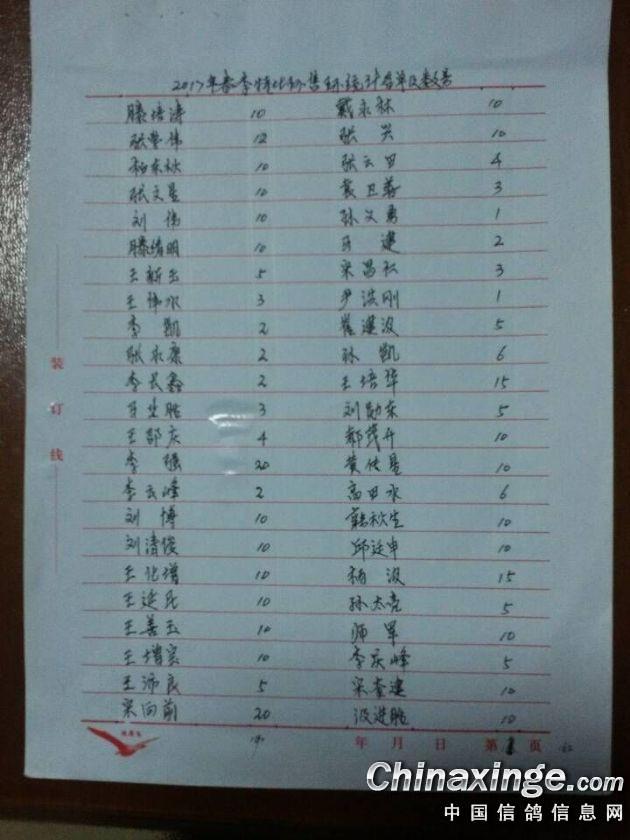 2017年春季特比环售环统计名单及数字
滕培涛 10 戴永林 10
张荣伟 12 张兴 10
柏东秋 10 张云田 4
张文星 10 袁卫蓉 3
刘伟 10 孙义勇 1
滕绪明 10 马建 2
王新玉 5 宋昌松 3
王伟水 3 尹波刚 1
李凯 2 崔汉波 5
张永康 2 孙凯 6
李长鑫 2 王培华 15
3 刘勋东 5
王邵庆 4 郝茂升 10
李强 20 黄传星 10
李云峰 2 高田水 6
刘博 10 韩秋生 10
刘清俊 10 邱延申 10
王化增 10 杨波 15
王延民 10 孙太亮 5
王善玉 10 师军 10
王增宾 10 李庆峰 5
王沛良 5 宋查建 10
宋向前 20 汲进胜 10
装订线
191 年 月 日 第 1 页
Chinaxinge.com
中国信鸽信息网